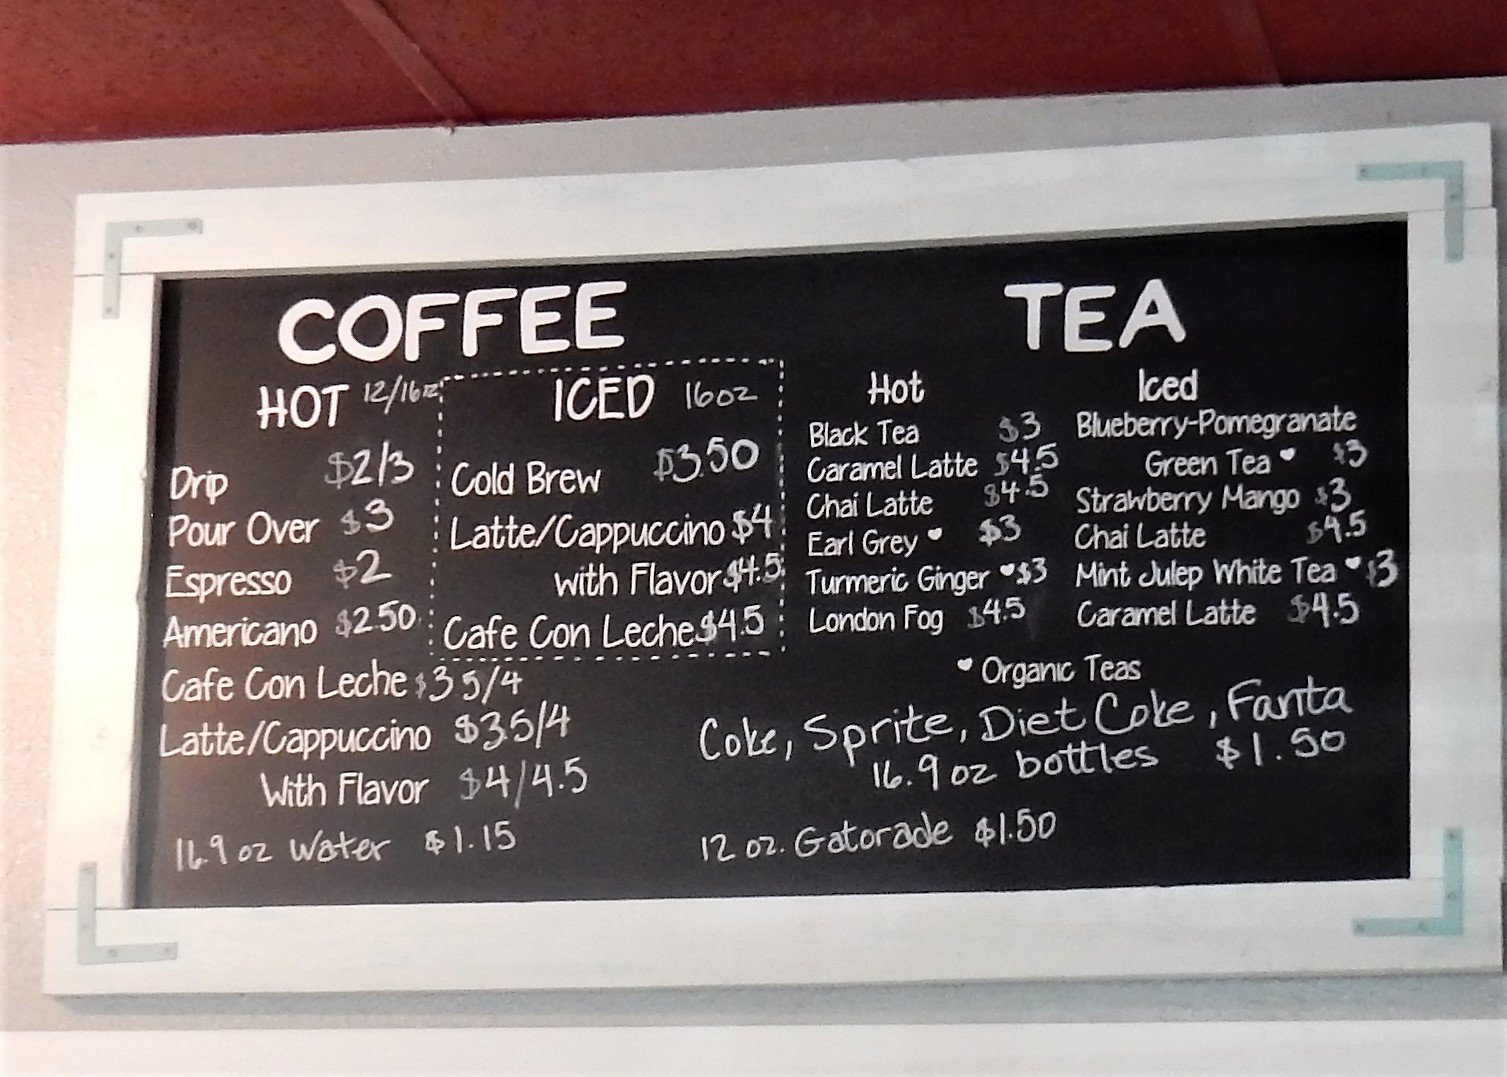 COFFEE
HOT 12/16oz
Drip $2/3
Pour Over $3
Espresso $2
Americano $2.50
Cafe Con Leche $3 5/4
Latte/Cappuccino $3.5/4
With Flavor $4/4.5
16.9 oz Water $1.15
ICED 16oz
Cold Brew $3.50
Latte/Cappuccino $4
with Flavor $4.5
Cafe Con Leche $4.5
TEA
Hot
Black Tea $3
Caramel Latte $4.5
Chai Latte $4.5
Earl Grey ♥ $3
Turmeric Ginger ♥ $3
London Fog $4.5
Iced
Blueberry-Pomegranate
Green Tea ♥ $3
Strawberry Mango $3
Chai Latte $4.5
Mint Julep White Tea ♥ $3
Caramel Latte $4.5
♥ Organic Teas
Coke, Sprite, Diet Coke, Fanta
16.9 oz bottles $1.50
12 oz. Gatorade $1.50